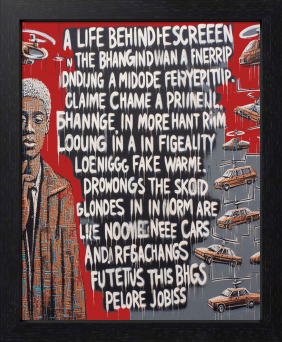 A LIFE BEHINDHESCREEEN
N THE BHANGINDWAN A FNERRIP
IDNDUNG A MIDODE FEIRYEPITIIP.
CLAIME CHAME A PRIINEIIJL.
5HANNGE, IN MORE HANT RIIM
LOOUNG IN A IN FIGEALITY
LOENIGGG FAKE WARME.
DROWONGS THE SKOID
GLONDES IN IN NORM ARE
LIKE NOOME NEEE CARS
AND RFGACHANGS
FUTETUS THIS BHGS
PELORE JOBISS